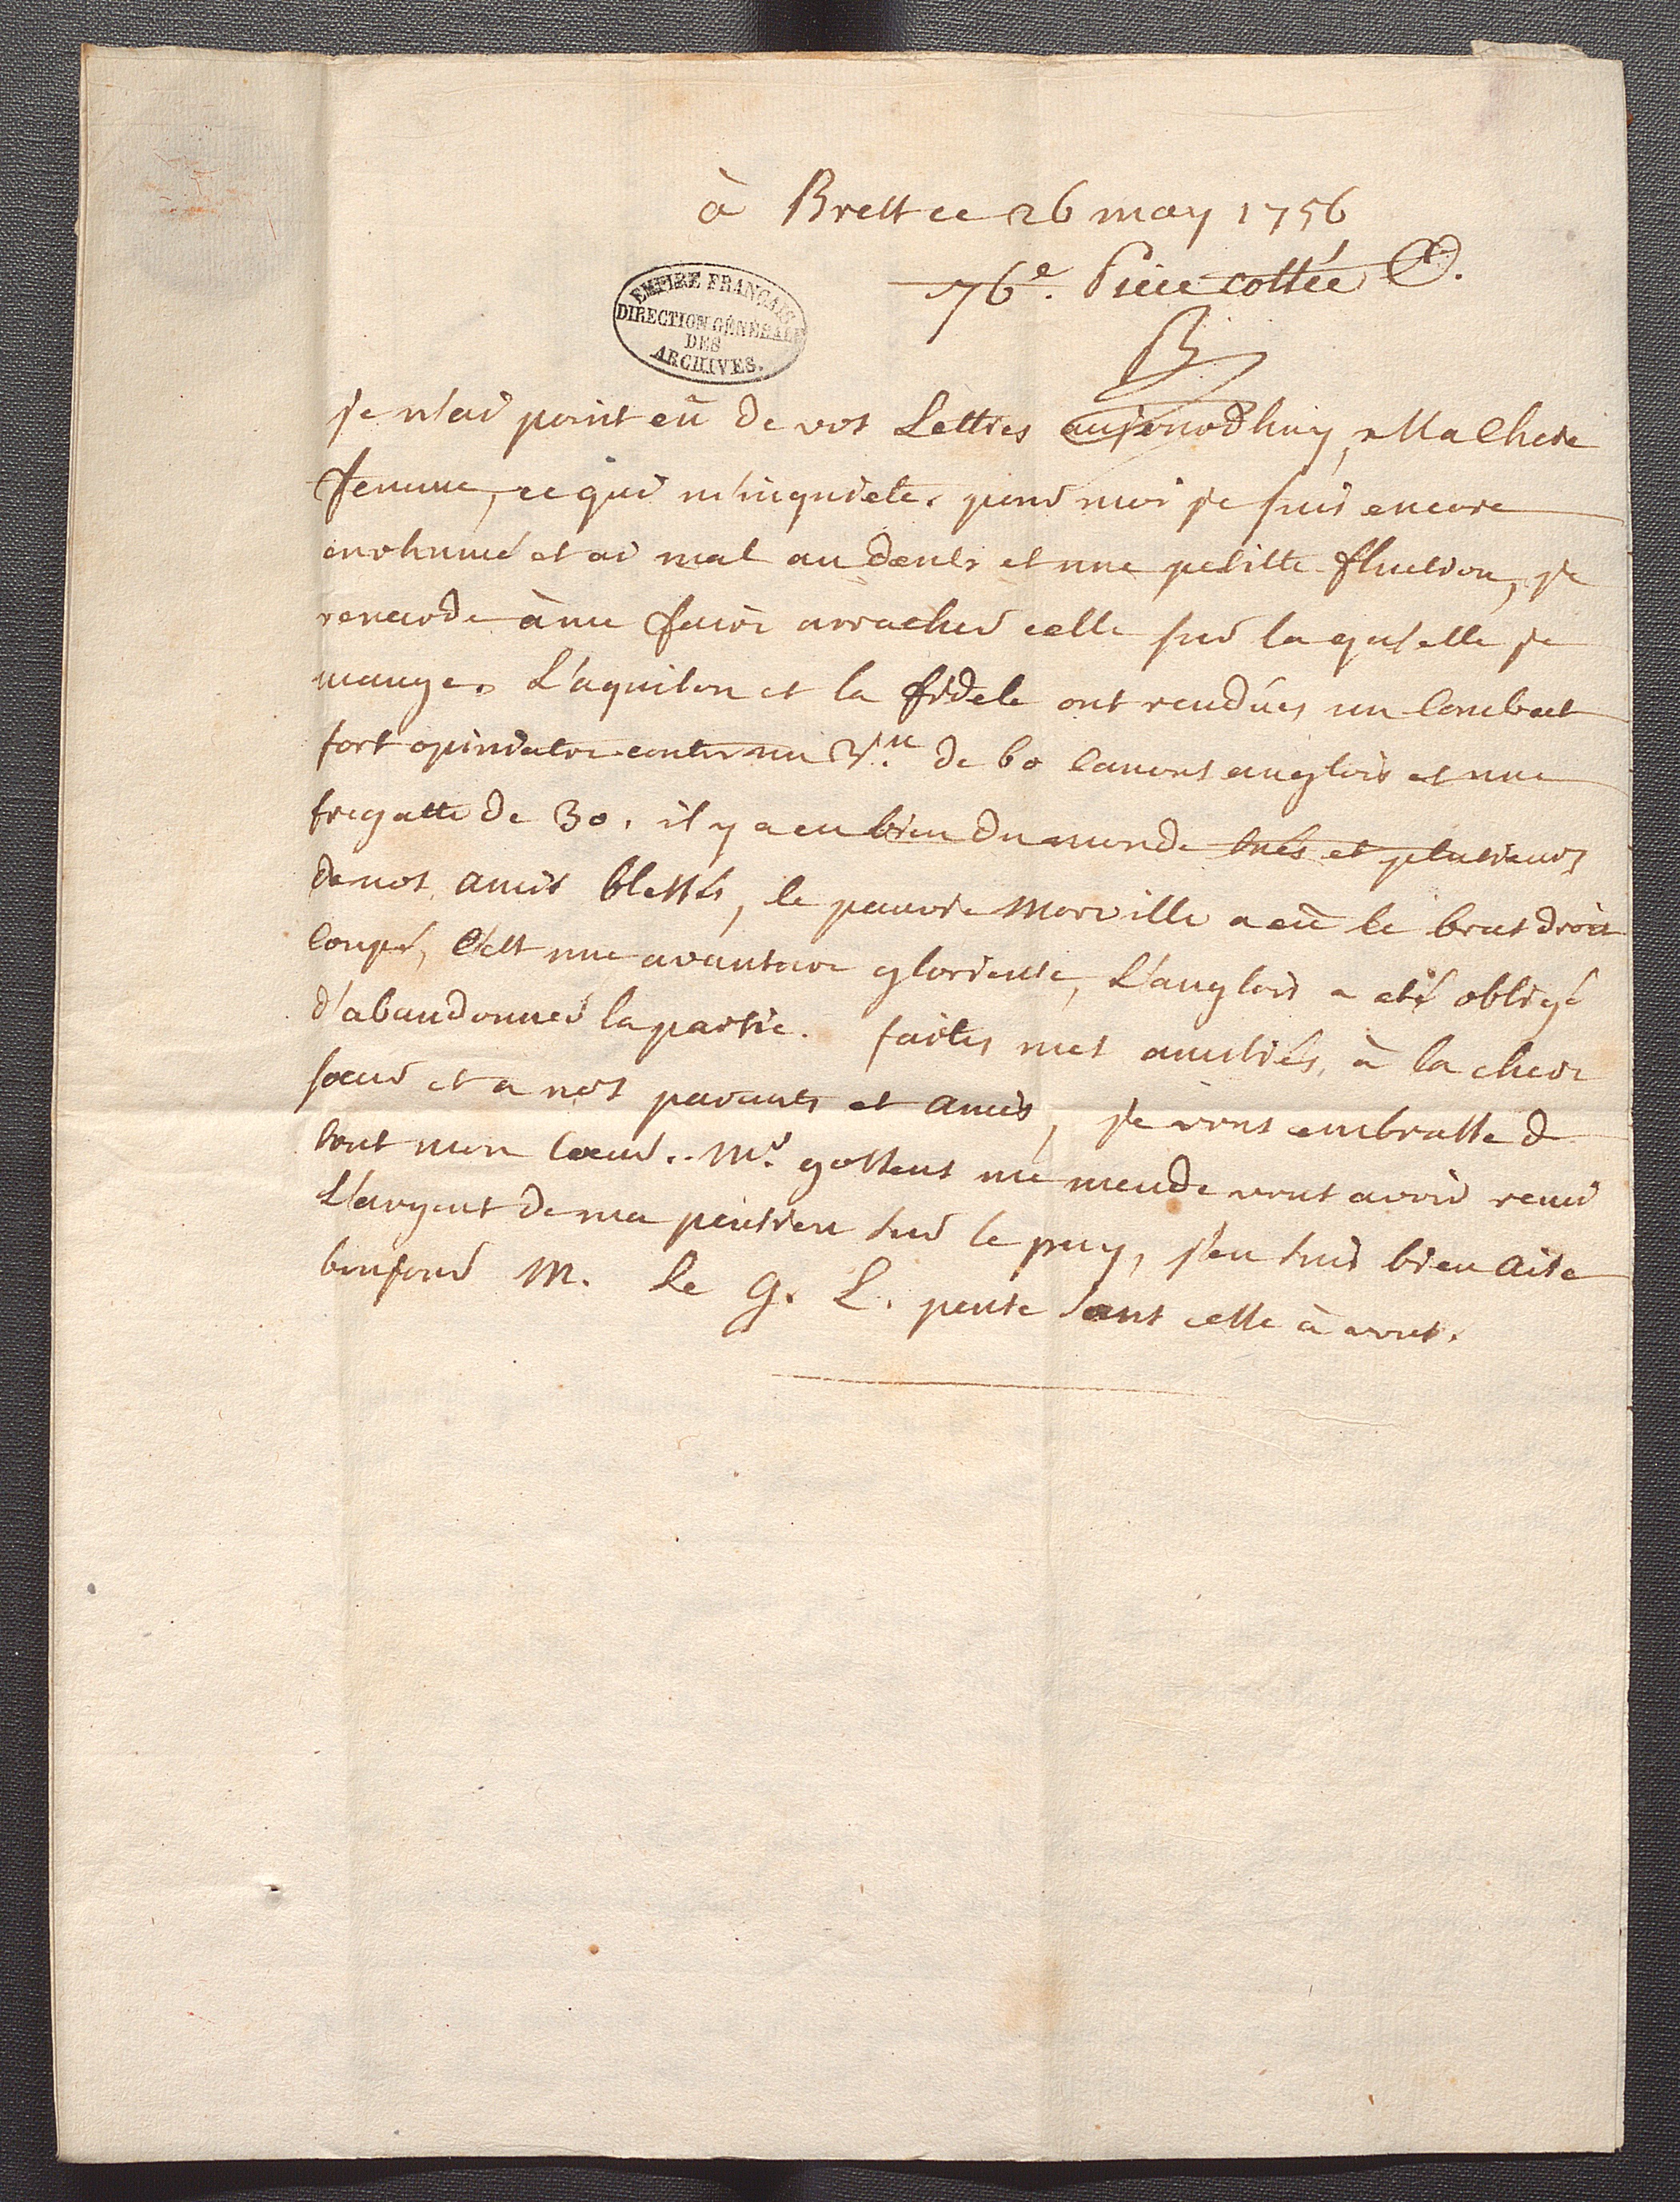 à Brest ce 26 may 1756
76e. Piece cottée
EMPIRE FRANÇAIS
DIRECTION GÉNÉRALE
DES
ARCHIVES.
B
je n'ai point eû de vos Lettres aujourodhuy, Ma Chere
femme, ce qui m'inquiete. pour moi je suis encore
enrhumé et ai mal au dents et une petitte fluction, je
renarde à me faire arracher celle sur laquelle je
mange. L'aquilon et la fidele ont rendües un Combat
fort opiniatre contre un Vau. de 60 Canons anglois et une
fregatte de 30. il y a eu bien du monde tués et plusieurs
de nos amis blessés, le pauvre Morville a eû le bras droit
Coupé, C'est une avanture glorieuse, L'anglois a eté obligé
d'abandonner la partie. faites mes amitiés, à la chere
soeur et a nos parants et amis, je vous embrasse d
tout mon Coeur.. Mr. gossens me mende vous avoir remi
L'argent de ma pension sur le puy, j'en suis bien aise
bonjour M. Le G. L. pense sans cesse à vous.